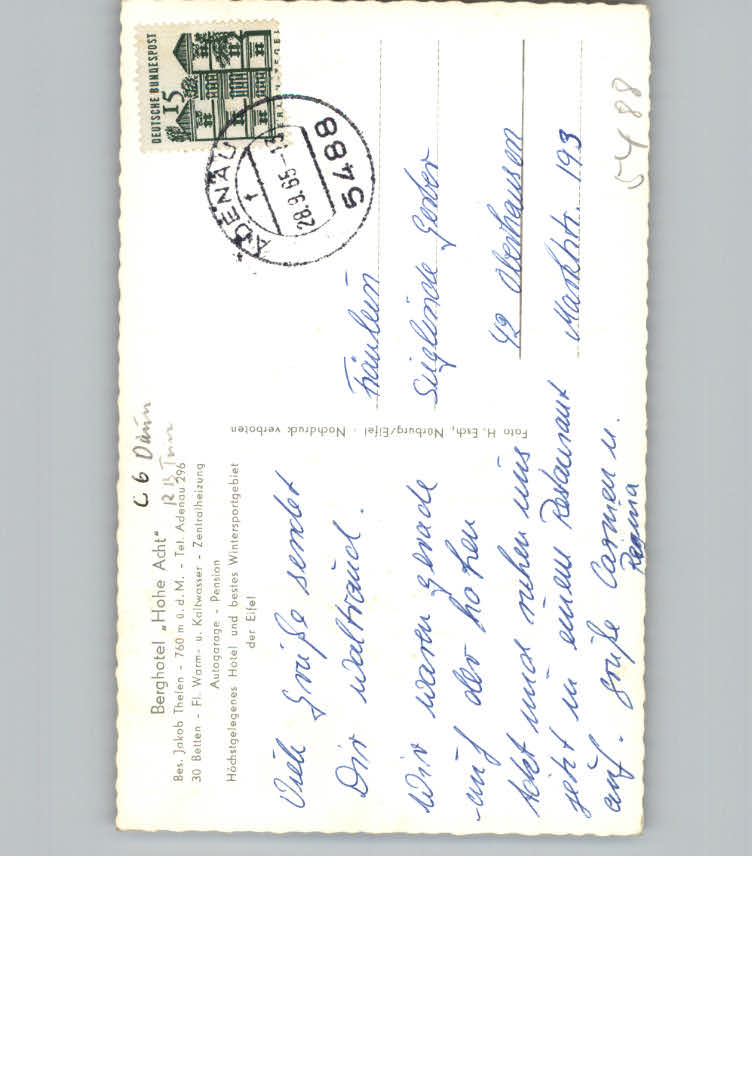 Berghotel „Hohe Acht“
Bes. Jakob Thelen - 760 m ü. d. M. - Tel. Adenau 296
30 Betten - Fl. Warm- u. Kaltwasser - Zentralheizung
Autogarage - Pension
Höchstgelegenes Hotel und bestes Wintersportgebiet
der Eifel
C 6 Daun
Viele Grüße sendet
Dir Waltraud.
Wir waren gerade
auf der hohen
Acht und ruhen uns
jetzt in einem Restaurant
auf. Grüße Carmen u.
Regina
Foto H. Esch, Nürburg/Eifel - Nachdruck verboten
DEUTSCHE BUNDESPOST
15
ADENAU
28.9.65-13
5488
Fräulein
Sieglinde Gerber
42 Oberhausen
Marktstr. 193
5488